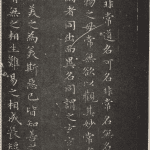 非常道名可名非常名無名
物之母常無欲以觀其妙常
者同出而異名同謂之玄玄
美之為美斯惡已皆知善
無之相生難易之相成長短